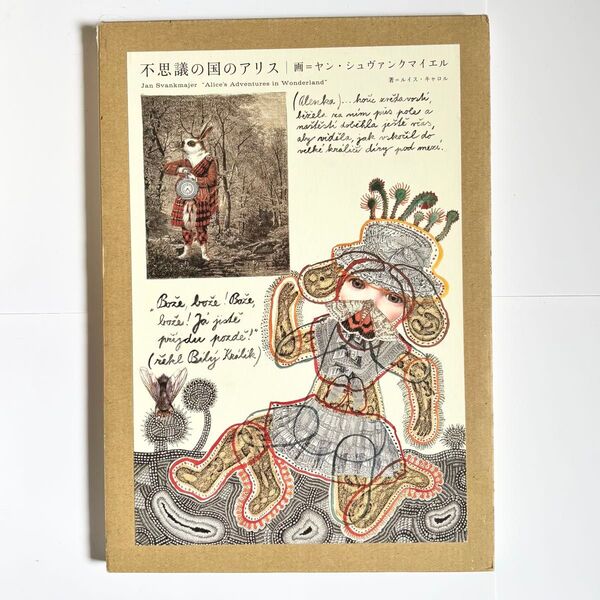 不思議の国のアリス｜画＝ヤン・シュヴァンクマイエル
Jan Svankmajer "Alice's Adventures in Wonderland"
著＝ルイス・キャロル
(Alenka)... hoříc zvědavostí,
běžela za ním přes pole a
naštěstí doběhla ještě včas,
aby viděla, jak vskočil do
velké králičí díry pod mezí.
„Bože, bože! Bože,
bože! Já jistě
přijdu pozdě!"
(řekl Bílý Králík)